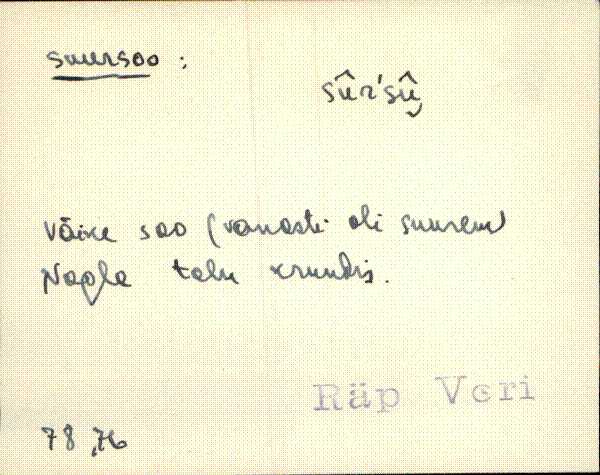 suursoo :
sûr'sū̬
Väike soo (vanasti oli suurem)
Napla talu krundis.
Räp Veri
78,76